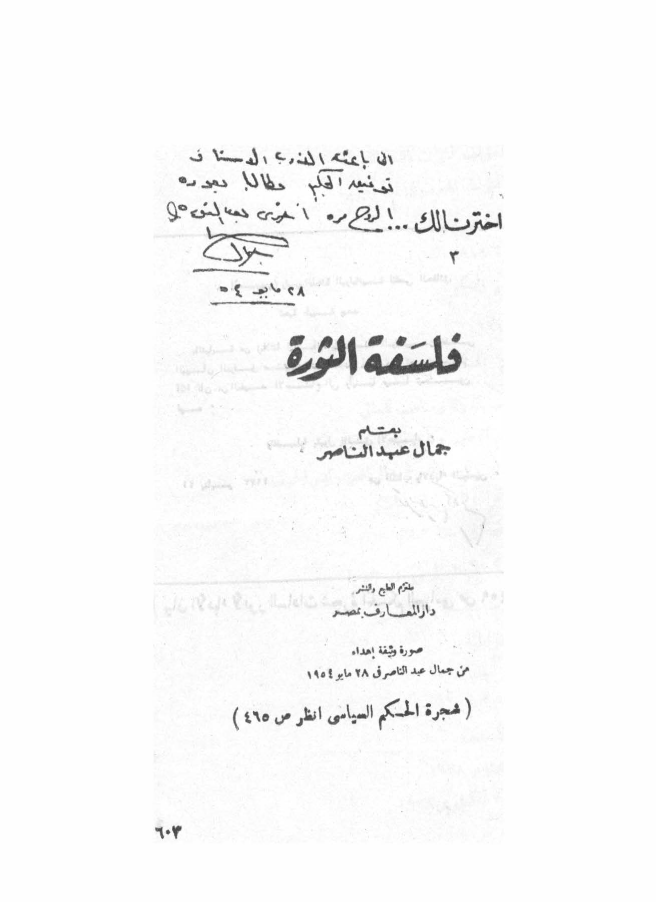 الى باعث الادب الاستاذ
توفيق الحكيم مطالبا بعودة
الروح مرة اخرى بعد الثورة
اخترنا لك ...
٣
جمال
٢٨ مايو ٥٤
فلسَفة الثورة
بقلم
جمال عبد الناصر
ملتزم الطبع والنشر
دار المعارف بمصر
صورة وثيقة إهداء
من جمال عبد الناصر فى ٢٨ مايو ١٩٥٤
( شجرة الحكم السياسى انظر ص ٤٦٥ )
٦٠٣